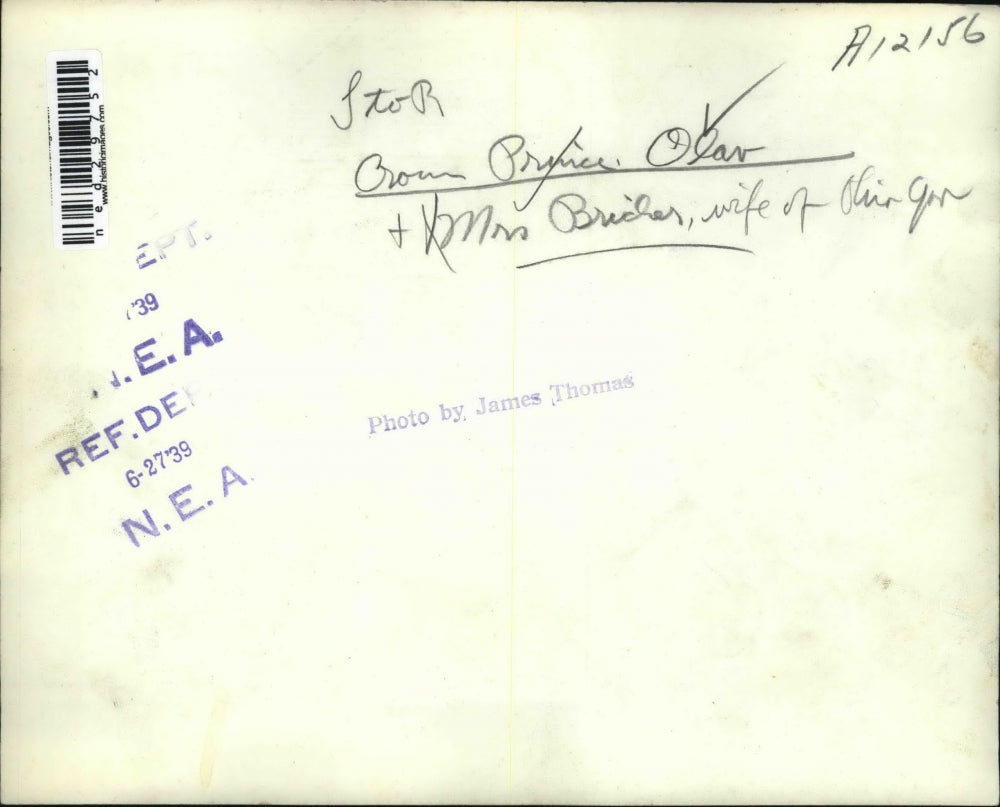 A12156
S to R
Crown Prince Olav
+ Mrs Bricker, wife of Ohio Gov
ned29752
www.historicimages.com
EPT.
'39
.E.A.
REF.DEP
6-27'39
N.E.A.
Photo by James Thomas